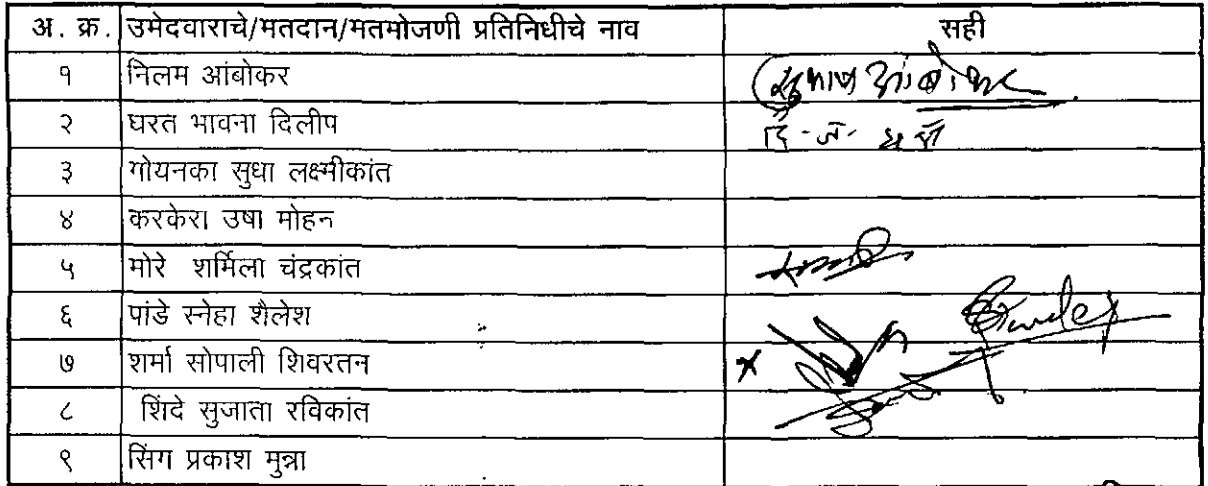 अ. क्र. उमेदवाराचे/मतदान/मतमोजणी प्रतिनिधीचे नाव सही
१ निलम आंबोकर
२ घरत भावना दिलीप
३ गोयनका सुधा लक्ष्मीकांत
४ करकेरा उषा मोहन
५ मोरे शर्मिला चंद्रकांत
६ पांडे स्नेहा शैलेश
७ शर्मा सोपाली शिवरतन
८ शिंदे सुजाता रविकांत
९ सिंग प्रकाश मुन्ना